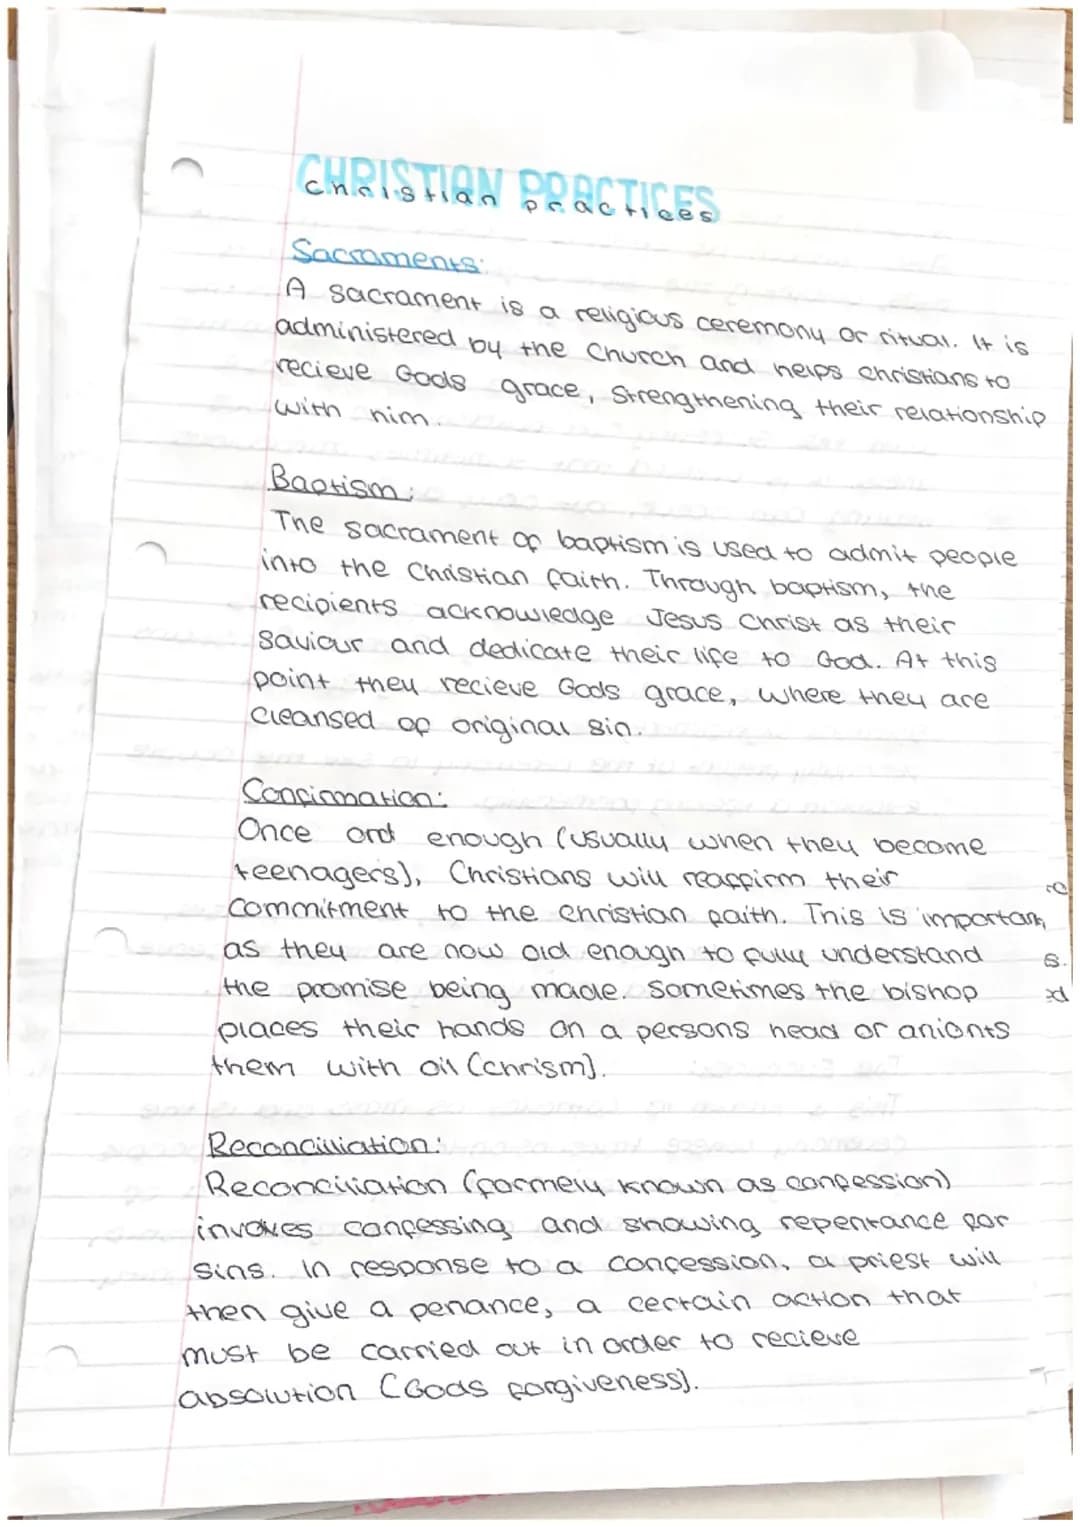 CHRISTIAN PRACTICES
christian practices
Sacraments:
A sacrament is a religious ceremony or ritual. It is
administered by the Church and helps christians to
recieve Gods grace, strengthening their relationship
with him.
Baptism:
The sacrament of baptism is used to admit people
into the Christian faith. Through baptism, the
recipients acknowledge Jesus Christ as their
saviour and dedicate their life to God. At this
point they recieve Gods grace, where they are
cleansed of original sin.
Confirmation:
Once old enough (usually when they become
teenagers), Christians will reaffirm their
commitment to the christian faith. This is important,
as they are now old enough to fully understand
the promise being made. Sometimes the bishop
places their hands on a persons head or anionts
them with oil (chrism).
Reconciliation:
Reconciliation (formely known as confession)
involves confessing and showing repentance for
sins. In response to a confession, a priest will
then give a penance, a certain action that
must be carried out in order to recieve
absolution (Gods forgiveness).